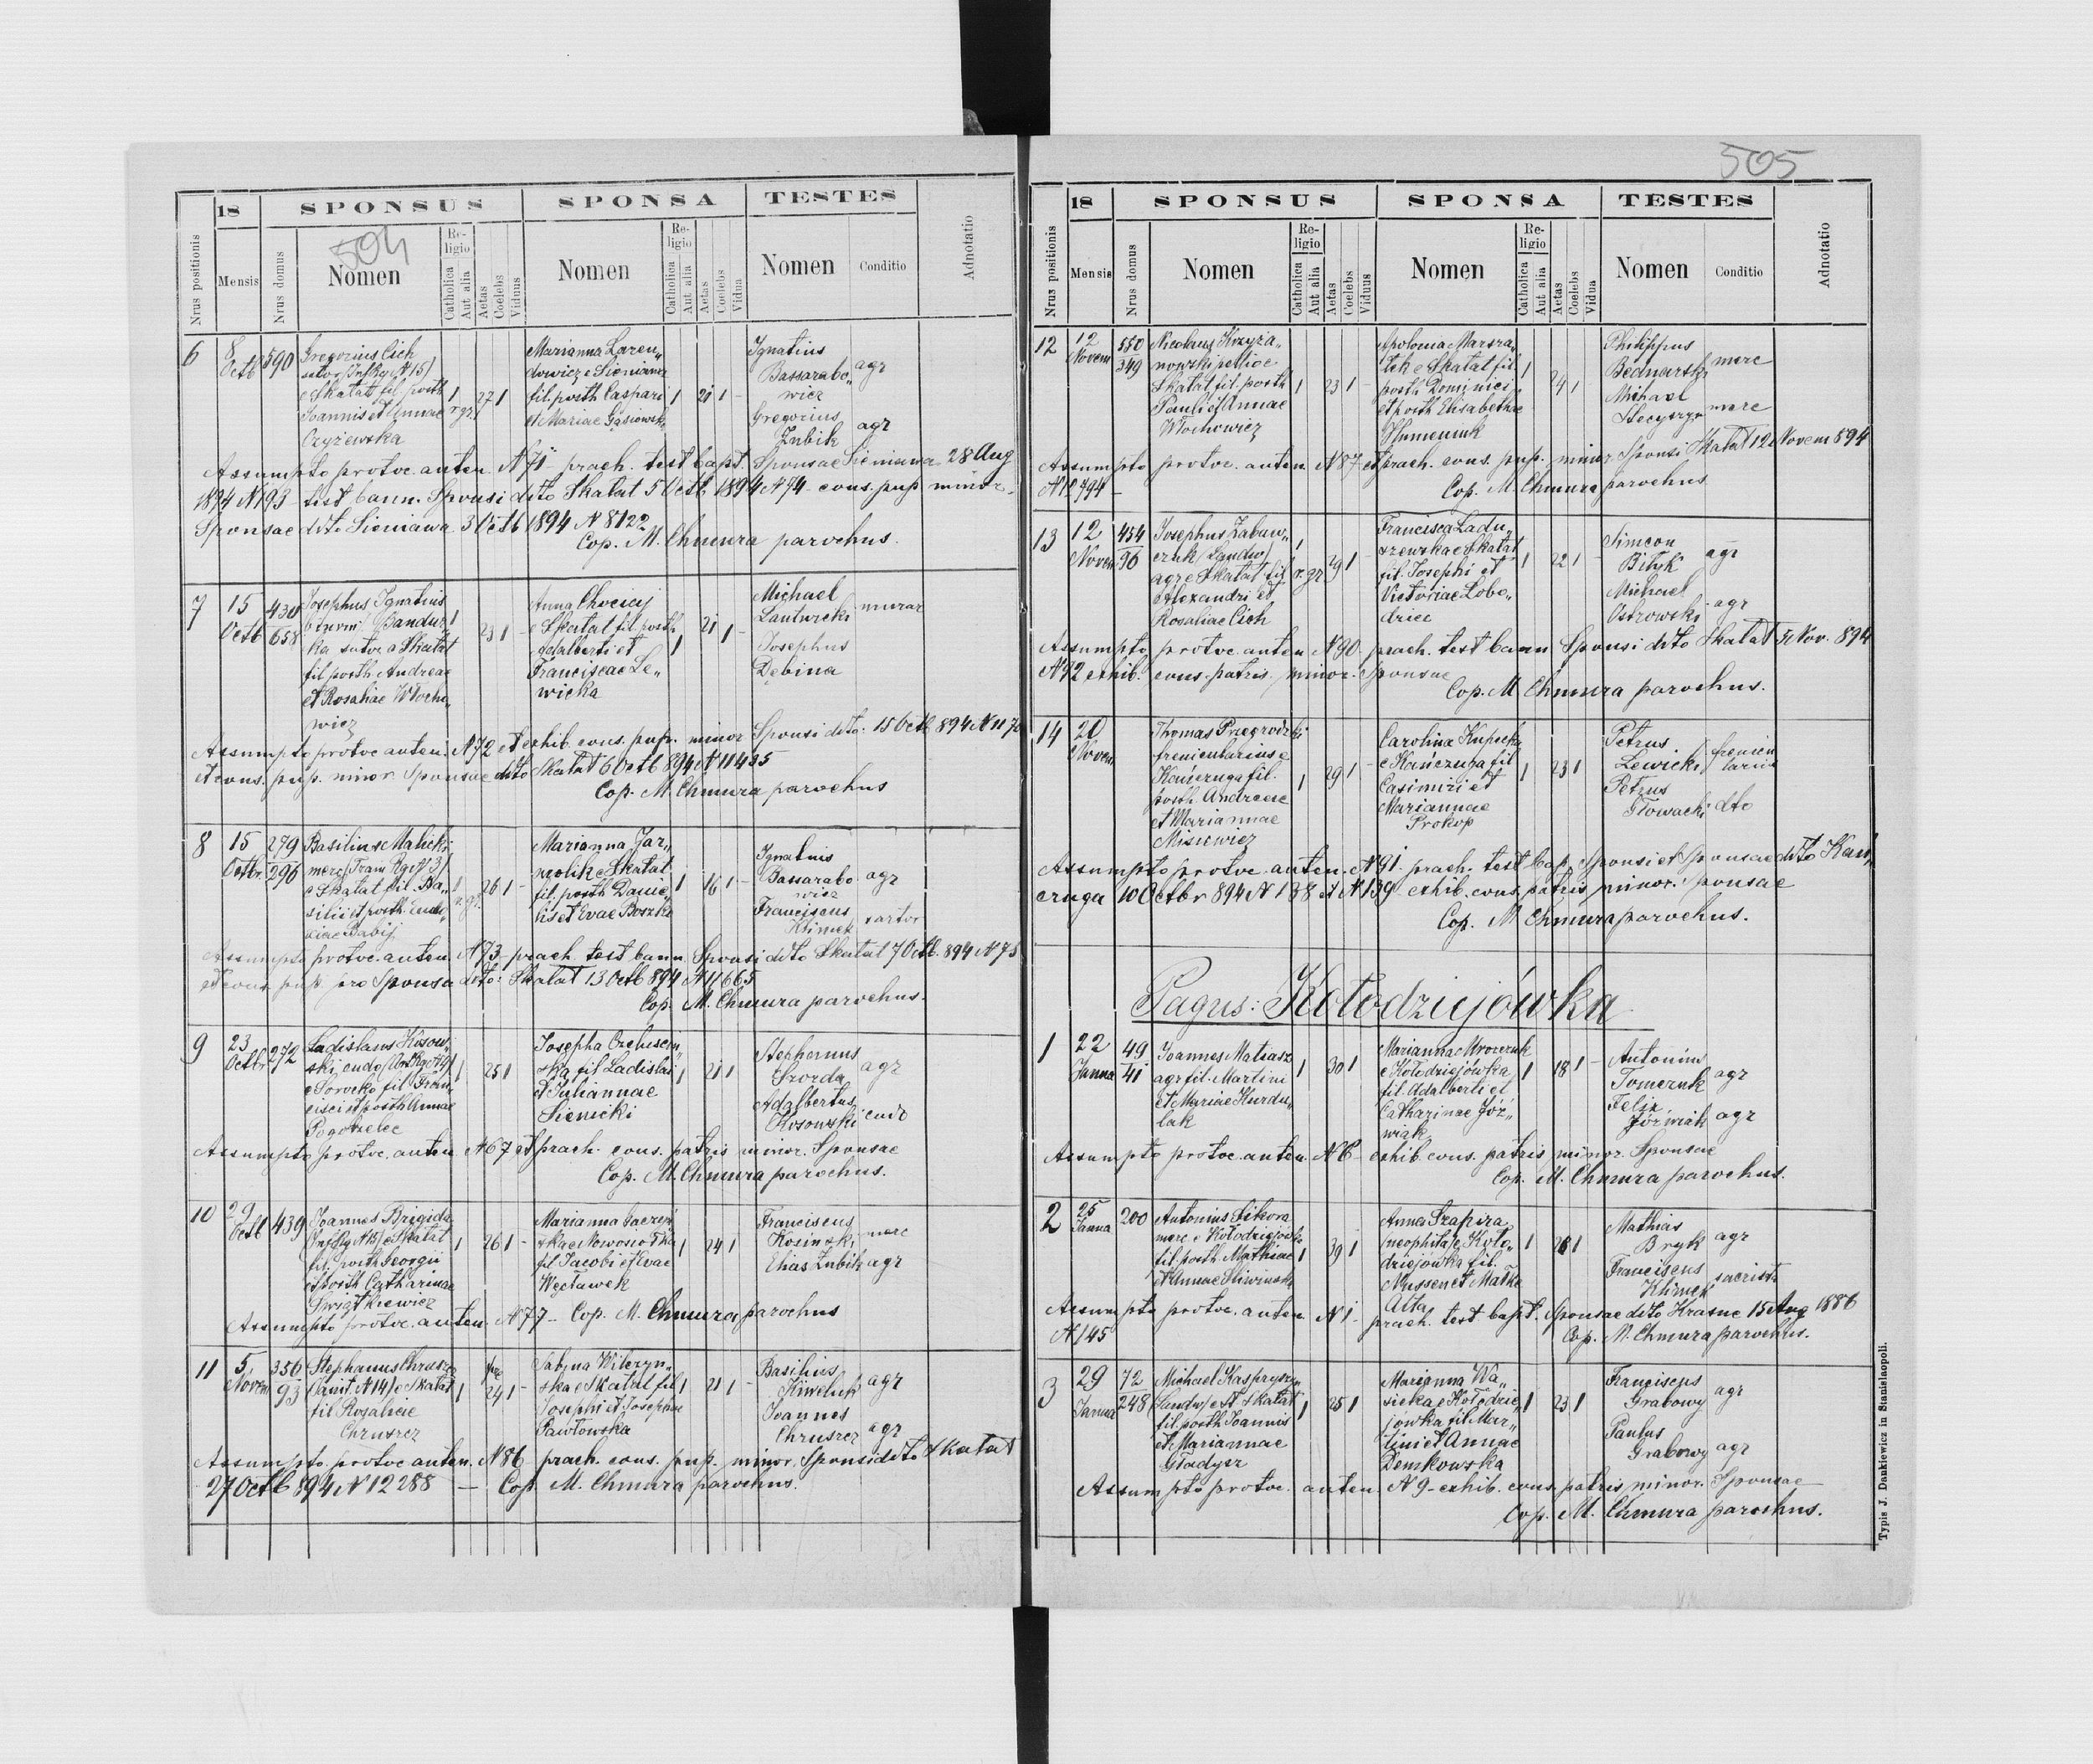 504
18
SPONSUS
SPONSA
TESTES
Nrus positionis
Mensis
Nrus domus
Nomen
Religio
Catholica
Aut alia
Aetas
Coelebs
Viduus
Nomen
Religio
Catholica
Aut alia
Aetas
Coelebs
Vidua
Nomen
Conditio
Adnotatio
6
8
Octb
590
Gregorius Cich
sutor
e Skałat fil. posth
Joannis et Annae
Czyżewska
1
r. gr.
27 1
Marianna Laren„
dowicz e Sieniawa
fil. posth Caspari
et Mariae Gąsiowsk
1
21 1 -
Ignatius
Bassarabo„
wicz
agr
Gregorius
Zubik
agr
Assumpto protoc. anten. N 71 - prach. test bapt. Sponsae Sieniawa 28 Aug
1894 N 193 test bann. Sponsi dito Skałat 5 Octb 1894 N 74 - cons. pup minor.
Sponsae dito Sieniawa 3 Octb 1894 N 8122
Cop. M. Chmura parochus.
7
15
Octb
430
658
Josephus Ignatius
binom Bandur„
ka sutor a Skałat
fil. posth Andreae
et Rosaliae Włocho„
wicz
1
23 1 -
Anna Chociej
e Skałat fil. posth
Adalberti et
Franciscae Le„
wicka
1
21 1 -
Michael
Lautwicki
murar
Josephus
Dębina
Assumpto protoc anten. N 72 et exhib. cons. pup. minor Sponsi dito: 15 Octb 894 N
et cons. pup. minor Sponsae dito Skałat 6 Octb 894 N 11435
Cop. M. Chmura parochus
8
15
Octbr.
279
296
Basilius Malicki
merc
e Skałat fil. Ba„
silii et posth Eudo„
ciae Babij
1
r. gr.
26 1 -
Marianna Jar„
molik e Skałat
fil. posth Danie„
lis et Evae Boszko
1
16 1 -
Ignatius
Bassarabo
wicz
agr
Franciscus
Klimek
sartor
Assumpto protoc. anten. N 73 prach. test bann. Sponsi dito Skałat 7 Octb. 894 N 75
et cons. pup. pro Sponsa dito: Skałat 13 Octb 894 N 11665
Cop. M. Chmura parochus.
9
23
Octbr.
272
Ladislaus Kosow„
ski, cudo
e fil. Fran„
cisci et posth Annae
Pogorzelec
1
25 1
Josepha
ska fil Ladislai
et Juliannae
Sienicki
1
21 1
Stephanus
Szozda
agr
Adalbertus
Kosowski
cudo
Assumpto protoc. anten N 67 et prach. cons. patris minor. Sponsae
Cop. M. Chmura parochus.
10
29
Octb
439
Joannes Brigida
e Skałat
fil. posth Georgii
et posth Catharinae
Świątkiewicz
1
26 1 -
Marianna
ska e Nowosiołka
fil Jacobi et Evae
Węcławek
1
24 1
Franciscus
Kosinski
merc
Elias Zubik
agr
Assumpto protoc. anten. N 77 - Cop. M. Chmura parochus
11
5
Novem
356
93
Stephanus Chruszcz
e Skałat
fil Rosaliae
Chruszcz
1
24 1 -
Sabina Wilczyn„
ska e Skałat fil
Josephi et Josephae
Pawłowska
1
21 1 -
Basilius
Kiweluk
agr
Joannes
Chruszcz
agr
Assumpto protoc anten. N 86 prach. cons. pup. minor. Sponsi dito Skałat
27 Octb 894 N 12288 — Cop. M. Chmura parochus.
505
18
SPONSUS
SPONSA
TESTES
Nrus positionis
Mensis
Nrus domus
Nomen
Religio
Catholica
Aut alia
Aetas
Coelebs
Viduus
Nomen
Religio
Catholica
Aut alia
Aetas
Coelebs
Vidua
Nomen
Conditio
Adnotatio
12
12
Novem
550
349
Nicolaus Krzyża„
nowski pellio e
Skałat fil. posth
Pauli et Annae
Włochowicz
1
23 1 -
Apolonia Marsza„
łek e Skałat fil.
posth Dominici
et posth Elisabethae
Humeniuk
1
24 1
Philippus
Bednarski
merc
Michael
Stecyszyn
merc
Assumpto protoc. anten. N 87 et prach. cons. pup. minor Sponsi Skałat 12 Novem 894
N 12794 -
Cop. M. Chmura parochus
13
12
Novem
454
96
Josephus Zabaw„
czuk
agr e Skałat fil
Alexandri et
Rosaliae Cich
1
r. gr.
29 1
Francisca Ladu„
szewska e Skałat
fil. Josephi et
Victoriae Lobo„
dziec
1
22 1
Simeon
Bityk
agr
Michael
Ostrowski
agr
Assumpto protoc. anten N 90. prach. test bann Sponsi dito Skałat 5 Nov. 894
N 92 exhib. cons. patris minor. Sponsae
Cop. M Chmura parochus.
14
20
Novem
Thomas Przegrodzki
frenicularius e
Kańczuga fil.
posth Andreae
et Mariannae
Misiewicz
1
29 1
Carolina Kupecka
e Kańczuga fil
Casimiri et
Mariannae
Prokop
1
23 1
Petrus
Lewicki
frenicu
larius
Petrus
Głowacki
dto
Assumpto protoc anten. N 91 prach. test bap. Sponsi et Sponsae dito Kań„
czuga 10 Octbr 894 N 138 et N 139 exhib. cons. patris minor. Sponsae
Cop. M Chmura parochus.
Pagus: Kołodziejówka
1
22
Janna
49
41
Joannes Matiasz
agr fil. Martini
et Mariae Kurdu„
lak
1
30 1
Marianna Mroczuk
e Kołodziejówka
fil. Adalberti et
Catharinae Jóź„
wiak
1
18 1 -
Antonius
Tomczuk
agr
Felix
Jóźwiak
agr
Assumpto protoc. anten. N 6 - exhib. cons. patris minor. Sponsae
Cop. M. Chmura parochus.
2
25
Janna
200
Antonius Sikora
merc e Kołodziejówka
fil. posth Mathiae
et Annae Śliwinska
1
39 1
Anna Szapira
(neophita) e Koło„
dziejówka fil.
Nussen et Małka
Alta
1
26 1
Mathias
Bryk
agr
Franciscus
Klimek
sacrista
Assumpto protoc. anten. N 1 - prach. test bapt. Sponsae dito Krasne 15 Aug 1886
N 145
Cop. M. Chmura parochus.
3
29
Janna
72
248
Michael Kaspryszyn
e St. Skałat
fil. posth Joannis
et Mariannae
Gładysz
1
25 1
Marianna Wa„
sieka e Kołodzie„
jowka fil. Mar„
tini et Annae
Demkowska
1
23 1
Franciscus
Grabowy
agr
Paulus
Grabowy
agr
Assumpto protoc. anten. N 9 - exhib. cons. patris minor. Sponsae
Cop. M. Chmura parochus.
Typis J. Dankiewicz in Stanislaopoli.